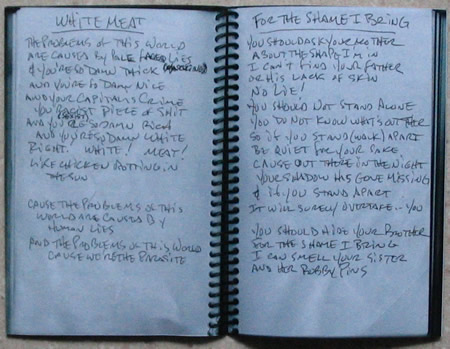 WHITE MEAT
THE PROBLEMS OF THIS WORLD
ARE CAUSED BY PALE FACED LIES
& YOU'RE SO DAMN THICK
AND YOU'RE SO DAMN NICE
AND YOUR CAPITALIS CRIME
YOU RACIST PIECE OF SHIT
AND YOU'RE SO DAMN RIGHT
AND YOU'RE SO DAMN WHITE
RIGHT. WHITE! MEAT!
LIKE CHICKEN ROTTING IN
THE SUN
CAUSE THE PROBLEMS OF THIS
WORLD ARE CAUSED BY
HUMAN LIES
AND THE PROBLEMS OF THIS WORLD
CAUSE WE'RE THE PARASITE
FOR THE SHAME I BRING
YOU SHOULD ASK YOUR MOTHER
ABOUT THE SHAPE I'M IN
I CAN'T FIND YOUR FATHER
OR HIS LACK OF SKIN
NO LIE!
YOU SHOULD NOT STAND ALONE
YOU DO NOT KNOW WHAT'S OUT THERE
SO IF YOU STAND (WALK) APART
BE QUIET FOR YOUR SAKE
CAUSE OUT THERE IN THE NIGHT
YOUR SHADOW HAS GONE MISSING
& IF YOU STAND APART
IT WILL SURELY OVERTAKE... YOU
YOU SHOULD HIDE YOUR BROTHER
FOR THE SHAME I BRING
I CAN SMELL YOUR SISTER
AND HER BOBBY PINS